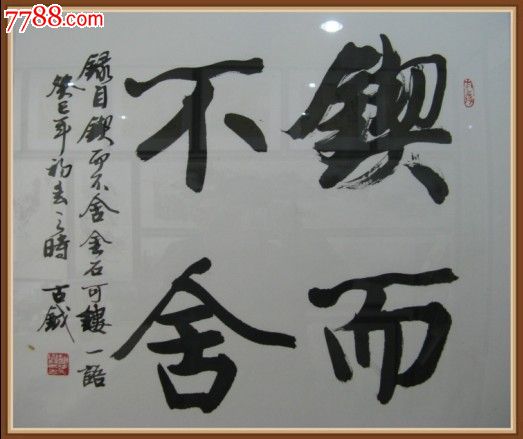 7788.com
锲而
不舍
録自锲而不舍金石可镂一語
癸巳年初春之時 古鉞